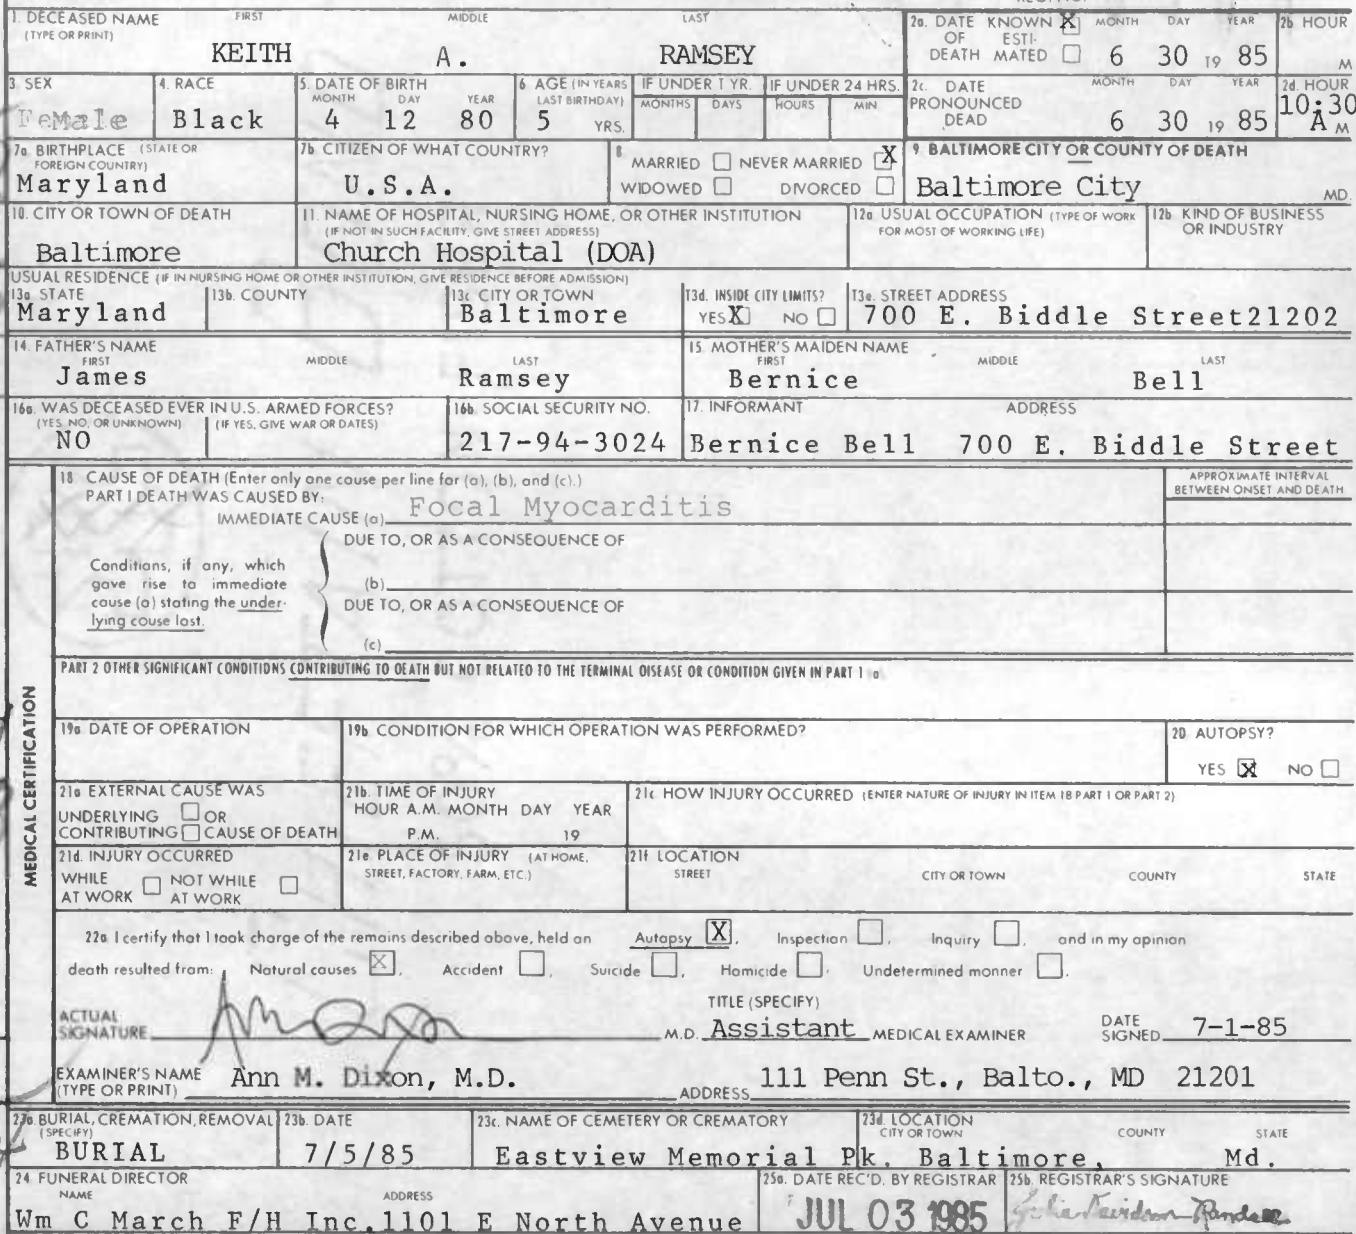 1. DECEASED NAME FIRST MIDDLE LAST
(TYPE OR PRINT)
KEITH A. RAMSEY
2a. DATE KNOWN X MONTH DAY YEAR 2b HOUR
OF ESTI-
DEATH MATED 6 30 19 85 M
3 SEX 4. RACE 5. DATE OF BIRTH 6 AGE (IN YEARS IF UNDER 1 YR. IF UNDER 24 HRS.
MONTH DAY YEAR LAST BIRTHDAY) MONTHS DAYS HOURS MIN
FeMale Black 4 12 80 5 YRS.
2c. DATE MONTH DAY YEAR 2d. HOUR
PRONOUNCED
DEAD 6 30 19 85 10:30 A M
7a BIRTHPLACE (STATE OR
FOREIGN COUNTRY)
Maryland
7b CITIZEN OF WHAT COUNTRY?
U.S.A.
8 MARRIED NEVER MARRIED X
WIDOWED DIVORCED
9 BALTIMORE CITY OR COUNTY OF DEATH
Baltimore City MD.
10. CITY OR TOWN OF DEATH
Baltimore
11. NAME OF HOSPITAL, NURSING HOME, OR OTHER INSTITUTION
(IF NOT IN SUCH FACILITY, GIVE STREET ADDRESS)
Church Hospital (DOA)
12a USUAL OCCUPATION (TYPE OF WORK
FOR MOST OF WORKING LIFE)
12b. KIND OF BUSINESS
OR INDUSTRY
USUAL RESIDENCE (IF IN NURSING HOME OR OTHER INSTITUTION, GIVE RESIDENCE BEFORE ADMISSION)
13a STATE 13b. COUNTY 13c CITY OR TOWN 13d. INSIDE CITY LIMITS? 13e. STREET ADDRESS
Maryland Baltimore YES X NO 700 E. Biddle Street21202
14. FATHER'S NAME
FIRST MIDDLE LAST
James Ramsey
15. MOTHER'S MAIDEN NAME
FIRST MIDDLE LAST
Bernice Bell
16a. WAS DECEASED EVER IN U.S. ARMED FORCES?
(YES, NO, OR UNKNOWN) (IF YES, GIVE WAR OR DATES)
NO
16b. SOCIAL SECURITY NO.
217-94-3024
17. INFORMANT ADDRESS
Bernice Bell 700 E. Biddle Street
MEDICAL CERTIFICATION
18 CAUSE OF DEATH (Enter only one cause per line for (a), (b), and (c).)
PART I DEATH WAS CAUSED BY:
APPROXIMATE INTERVAL
BETWEEN ONSET AND DEATH
IMMEDIATE CAUSE (a) Focal Myocarditis
DUE TO, OR AS A CONSEQUENCE OF
Conditions, if any, which
gave rise to immediate
cause (a) stating the under-
lying cause last.
(b)
DUE TO, OR AS A CONSEQUENCE OF
(c)
PART 2 OTHER SIGNIFICANT CONDITIONS CONTRIBUTING TO DEATH BUT NOT RELATED TO THE TERMINAL DISEASE OR CONDITION GIVEN IN PART 1 a
19a DATE OF OPERATION
19b. CONDITION FOR WHICH OPERATION WAS PERFORMED?
20. AUTOPSY?
YES X NO
21a EXTERNAL CAUSE WAS
UNDERLYING OR
CONTRIBUTING CAUSE OF DEATH
21b. TIME OF INJURY
HOUR A.M. MONTH DAY YEAR
P.M. 19
21c HOW INJURY OCCURRED (ENTER NATURE OF INJURY IN ITEM 18 PART 1 OR PART 2)
21d. INJURY OCCURRED
WHILE NOT WHILE
AT WORK AT WORK
21e PLACE OF INJURY (AT HOME,
STREET, FACTORY, FARM, ETC.)
21f LOCATION
STREET CITY OR TOWN COUNTY STATE
22a I certify that I took charge of the remains described above, held an Autopsy X, Inspection , Inquiry , and in my opinion
death resulted from: Natural causes X, Accident , Suicide , Homicide , Undetermined manner .
ACTUAL
SIGNATURE
TITLE (SPECIFY)
M.D. Assistant MEDICAL EXAMINER
DATE
SIGNED 7-1-85
EXAMINER'S NAME
(TYPE OR PRINT) Ann M. Dixon, M.D.
ADDRESS 111 Penn St., Balto., MD 21201
23a. BURIAL, CREMATION, REMOVAL
(SPECIFY)
BURIAL
23b. DATE
7/5/85
23c. NAME OF CEMETERY OR CREMATORY
23d. LOCATION
CITY OR TOWN COUNTY STATE
Eastview Memorial Pk. Baltimore, Md.
24 FUNERAL DIRECTOR
NAME ADDRESS
Wm C March F/H Inc.1101 E North Avenue
25a. DATE REC'D. BY REGISTRAR
JUL 03 1985
25b. REGISTRAR'S SIGNATURE
Julia Davidson-Randall